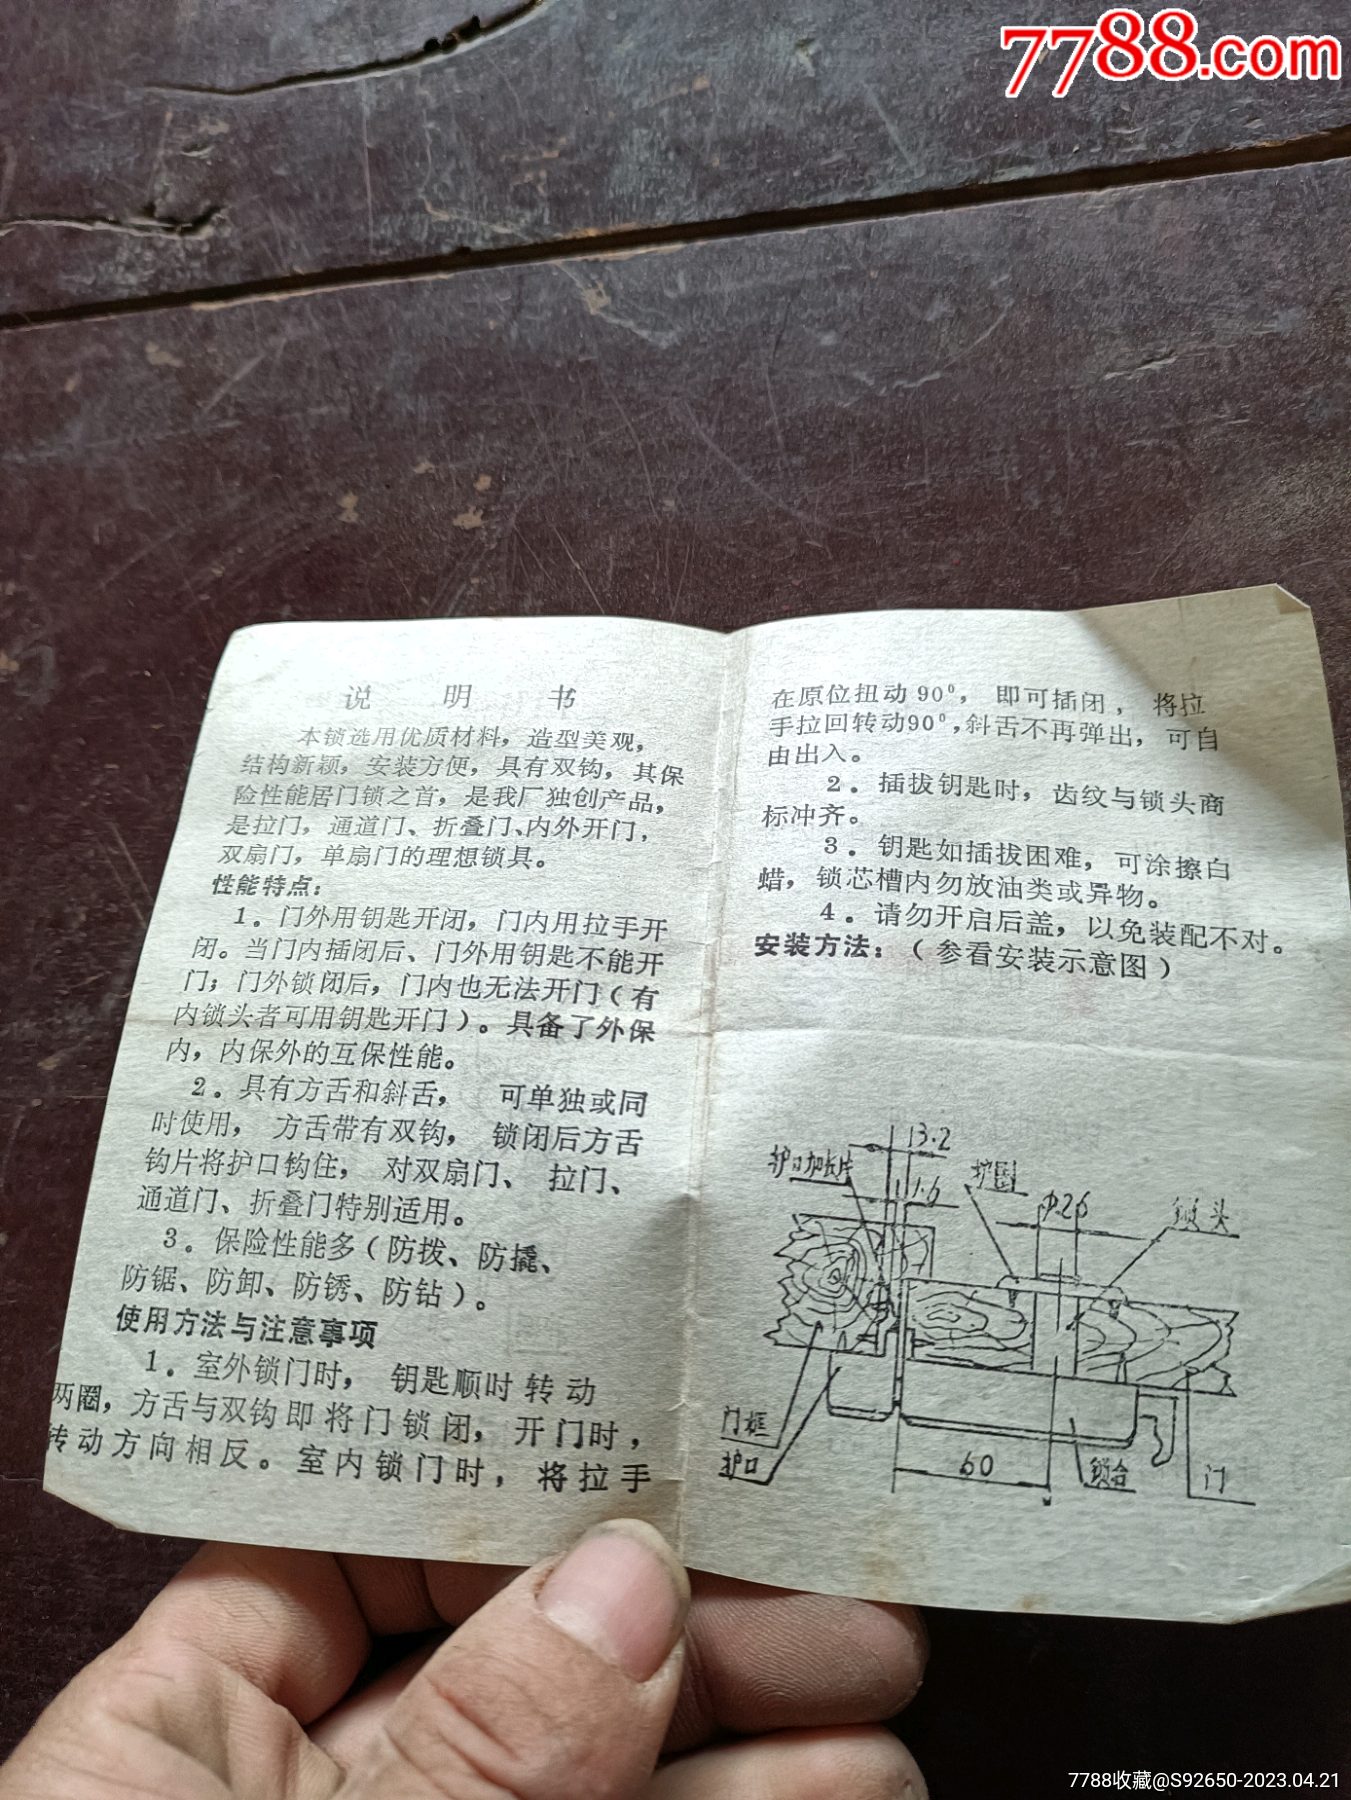 7788.com
说明书
本锁选用优质材料，造型美观，
结构新颖，安装方便，具有双钩，其保
险性能居门锁之首，是我厂独创产品，
是拉门，通道门、折叠门、内外开门，
双扇门，单扇门的理想锁具。
性能特点：
1。门外用钥匙开闭，门内用拉手开
闭。当门内插闭后、门外用钥匙不能开
门；门外锁闭后，门内也无法开门（有
内锁头者可用钥匙开门）。具备了外保
内，内保外的互保性能。
2。具有方舌和斜舌， 可单独或同
时使用， 方舌带有双钩， 锁闭后方舌
钩片将护口钩住， 对双扇门、 拉门、
通道门、折叠门特别适用。
3。保险性能多（防拨、防撬、
防锯、防卸、防锈、防钻）。
使用方法与注意事项
1。室外锁门时， 钥匙顺时转动
两圈，方舌与双钩即将门锁闭，开门时，
转动方向相反。室内锁门时，将拉手
在原位扭动90°， 即可插闭， 将拉
手拉回转动90°，斜舌不再弹出，可自
由出入。
2。插拔钥匙时，齿纹与锁头商
标冲齐。
3。钥匙如插拔困难，可涂擦白
蜡，锁芯槽内勿放油类或异物。
4。请勿开启后盖，以免装配不对。
安装方法：（参看安装示意图）
13.2
护口加长片
护圈
1.6
φ26
锁头
门框
护口
60
锁合
门
7788收藏@S92650-2023.04.21